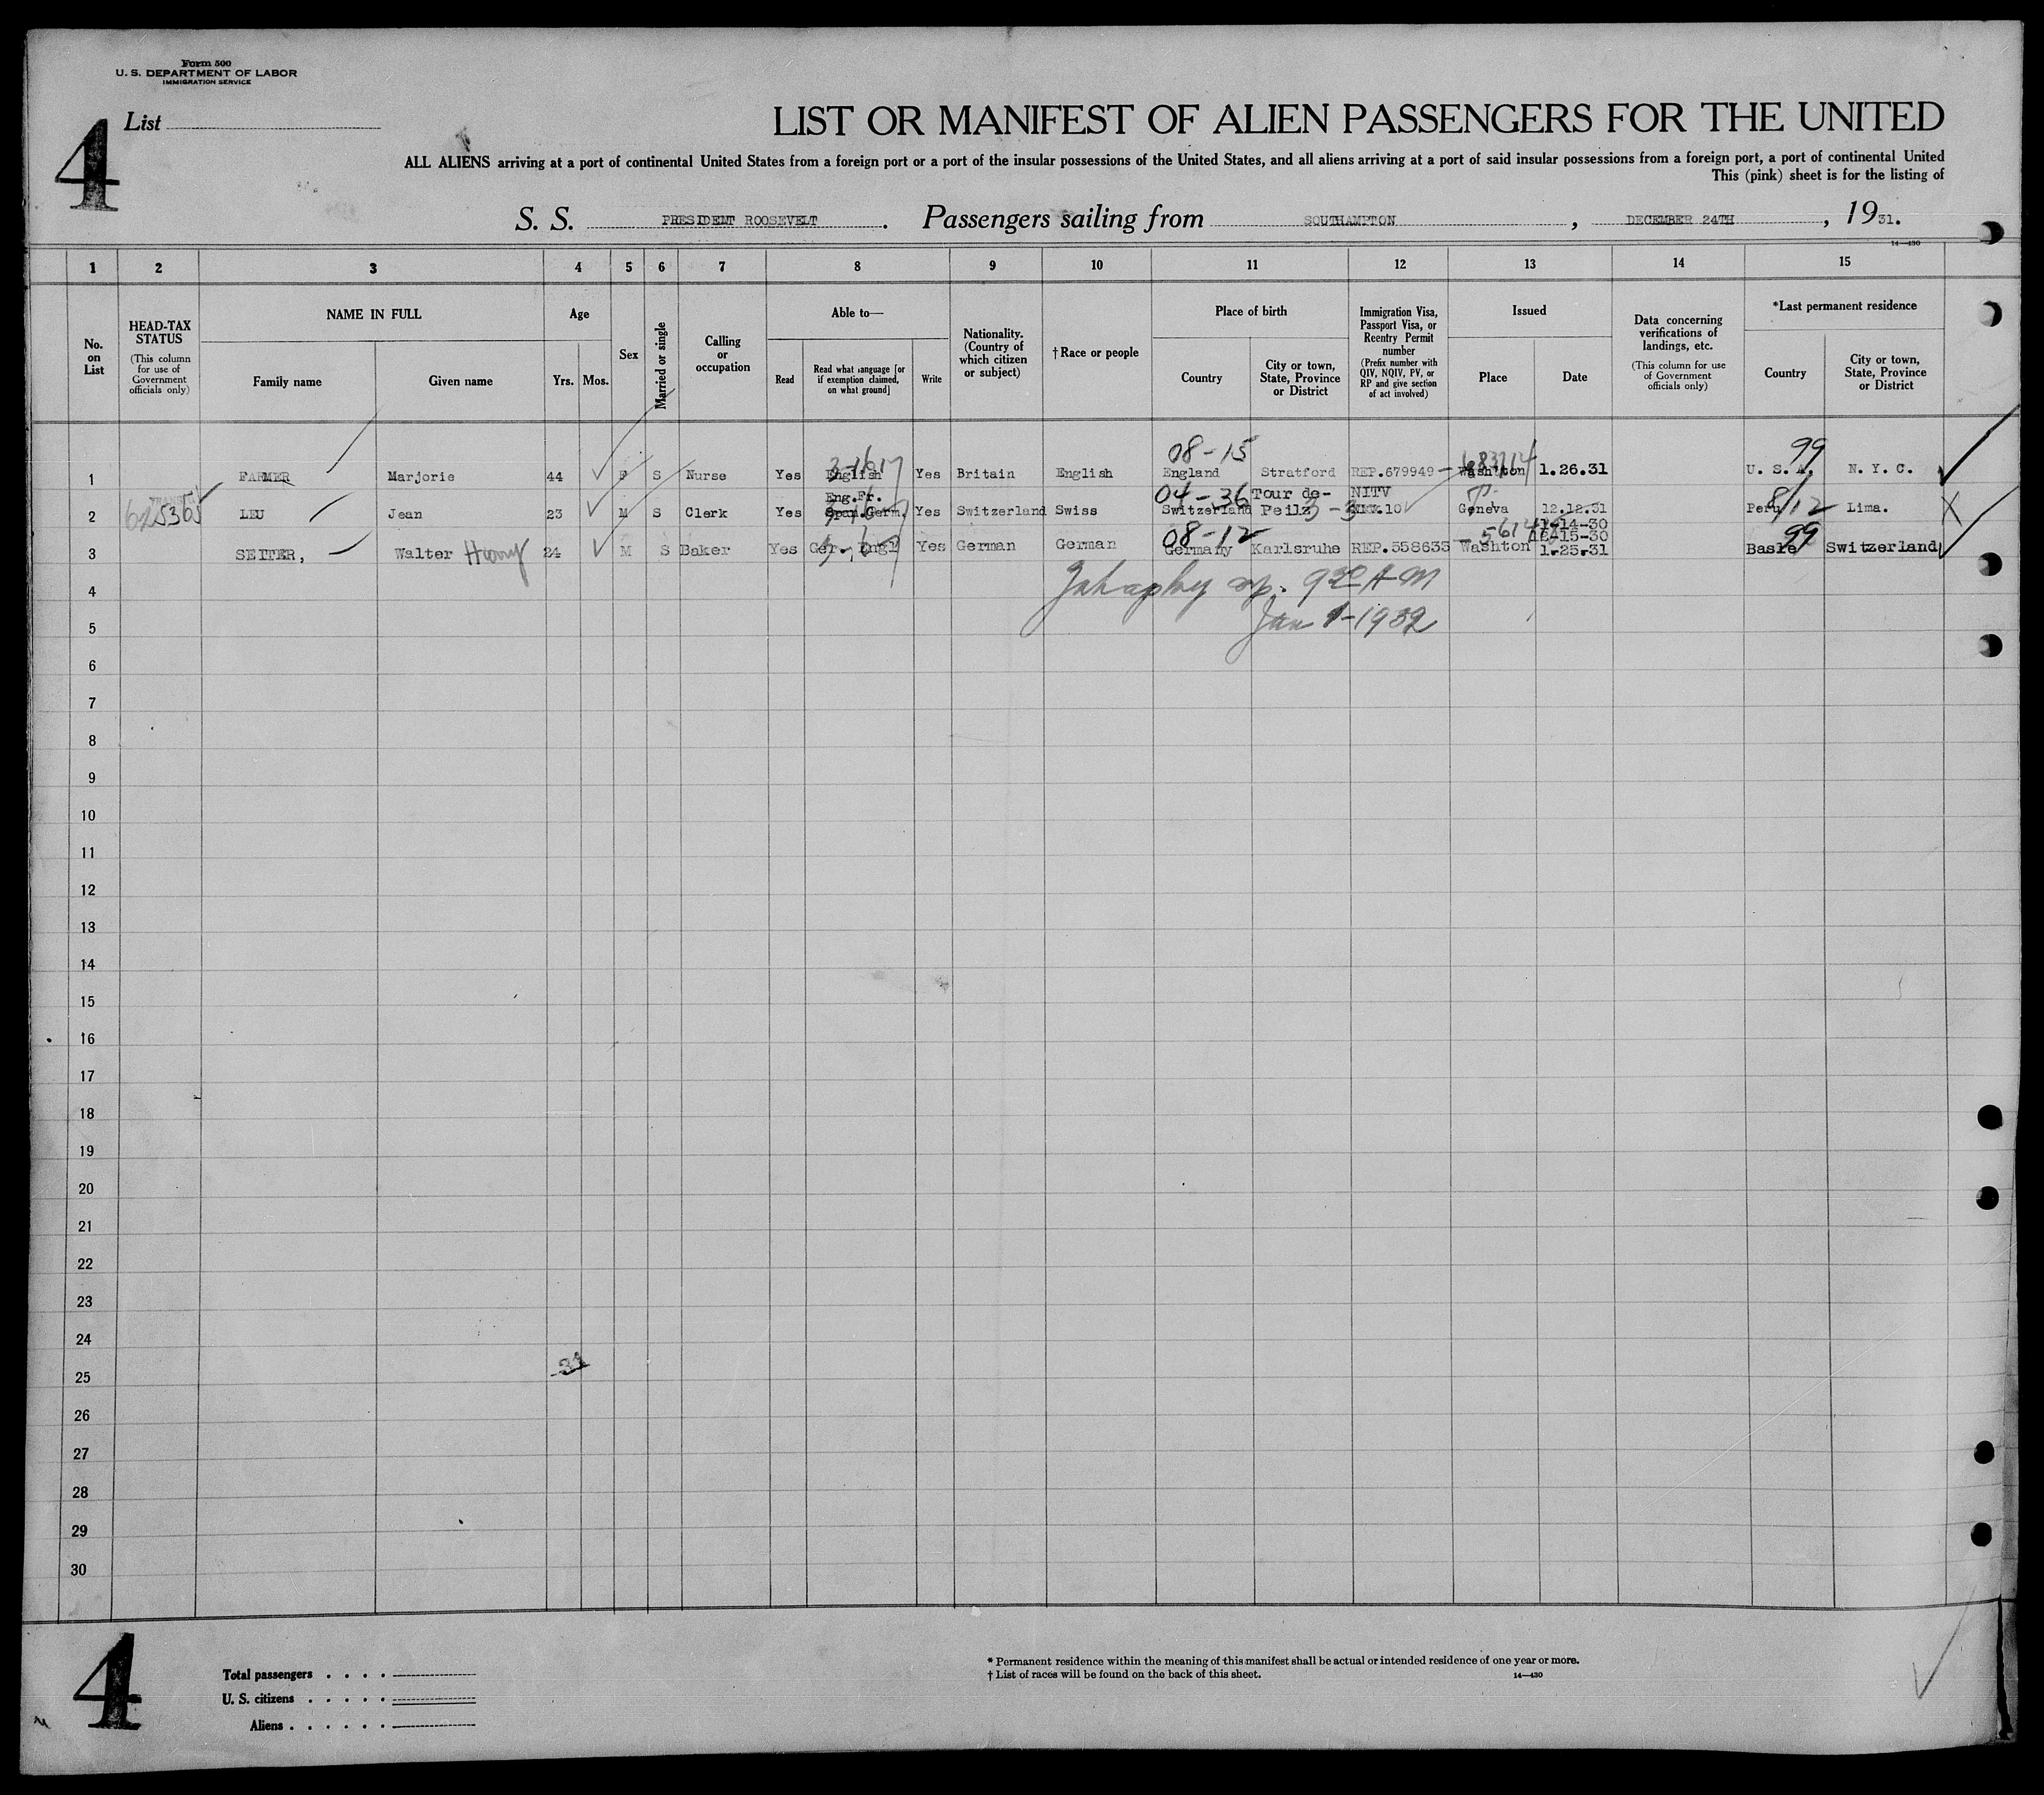 Form 500
U. S. DEPARTMENT OF LABOR
IMMIGRATION SERVICE
4
List
LIST OR MANIFEST OF ALIEN PASSENGERS FOR THE UNITED
ALL ALIENS arriving at a port of continental United States from a foreign port or a port of the insular possessions of the United States, and all aliens arriving at a port of said insular possessions from a foreign port, a port of continental United
This (pink) sheet is for the listing of
S. S. PRESIDENT ROOSEVELT. Passengers sailing from SOUTHAMPTON, DECEMBER 24TH, 1931.
14—430
1 2 3 4 5 6 7 8 9 10 11 12 13 14 15
No. on List
HEAD-TAX STATUS
(This column for use of Government officials only)
NAME IN FULL
Family name
Given name
Age
Yrs. Mos.
Sex
Married or single
Calling or occupation
Able to—
Read
Read what language [or if exemption claimed, on what ground]
Write
Nationality. (Country of which citizen or subject)
† Race or people
Place of birth
Country
City or town, State, Province or District
Immigration Visa, Passport Visa, or Reentry Permit number
(Prefix number with QIV, NQIV, PV, or RP and give section of act involved)
Issued
Place
Date
Data concerning verifications of landings, etc.
(This column for use of Government officials only)
*Last permanent residence
Country
City or town, State, Province or District
08-15 99
1 FARMER Marjorie 44 F S Nurse Yes English Yes Britain English England Stratford REP.679949 Wash'ton 1.26.31 U. S. A. N. Y. C.
TRANSIT Eng.Fr. 04-36 Tour de- NITV 8/12
2 LEU Jean 23 M S Clerk Yes Span.Germ. Yes Switzerland Swiss Switzerland Peilz 3-3 10 Geneva 12.12.31 Peru Lima. X
08-12 99
3 SEITER, Walter Henry 24 M S Baker Yes Ger. Engl Yes German German Germany Karlsruhe REP.558635 Washton 1.25.31 Basle Switzerland
9 30 A M
4
Jan 1-1932
5
6
7
8
9
10
11
12
13
14
15
16
17
18
19
20
21
22
23
24
25
26
27
28
29
30
4
Total passengers . . . .
U. S. citizens . . . . .
Aliens . . . . . .
* Permanent residence within the meaning of this manifest shall be actual or intended residence of one year or more.
† List of races will be found on the back of this sheet.
14—430